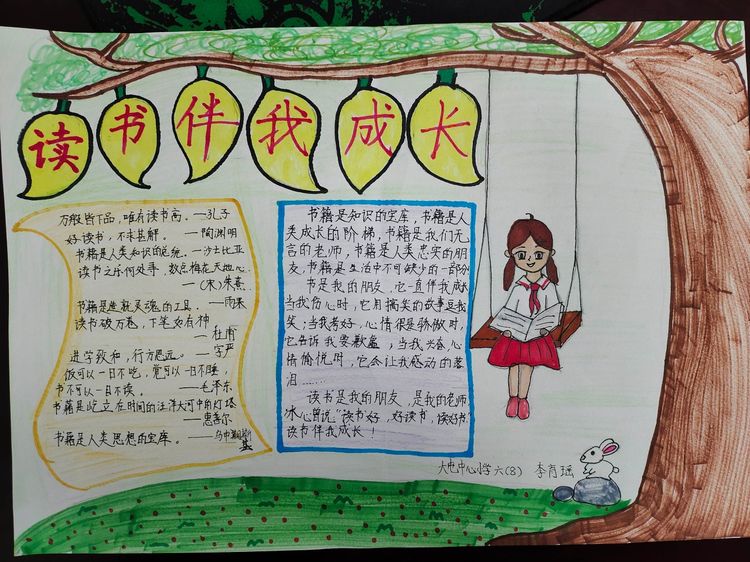 读书伴我成长
万般皆下品，唯有读书高。—孔子
好读书，不求甚解。—陶渊明
书籍是人类知识的总统。—沙士比亚
读书之乐何处寻，数点梅花天地心。
—(宋)朱熹
书籍是造就灵魂的工具。—雨果
读书破万卷，下笔如有神
—杜甫
进学致和，行方思远。—字严
饭可以一日不吃，觉可以一日不睡，
书不可以一日不读。——毛泽东
书籍是屹立在时间的汪洋大河中的灯塔
——惠普尔
书籍是人类思想的宝库。——乌申斯基
书籍是知识的宝库，书籍是人
类成长的阶梯，书籍是我们无
言的老师，书籍是人类忠实的朋
友，书籍是生活中不可缺少的一部份
书是我的朋友，它一直伴我成长
当我伤心时，它用搞笑的故事逗我
笑；当我考好，心情很是骄傲时，
它告诉我要谦虚，当我兴奋心
情愉悦时，它会让我感动的落
泪……
读书是我的朋友，是我的老师，
冰心曾说“读书好，好读书，读好书”
读书伴我成长！
大屯中心小学六(8) 李育瑶